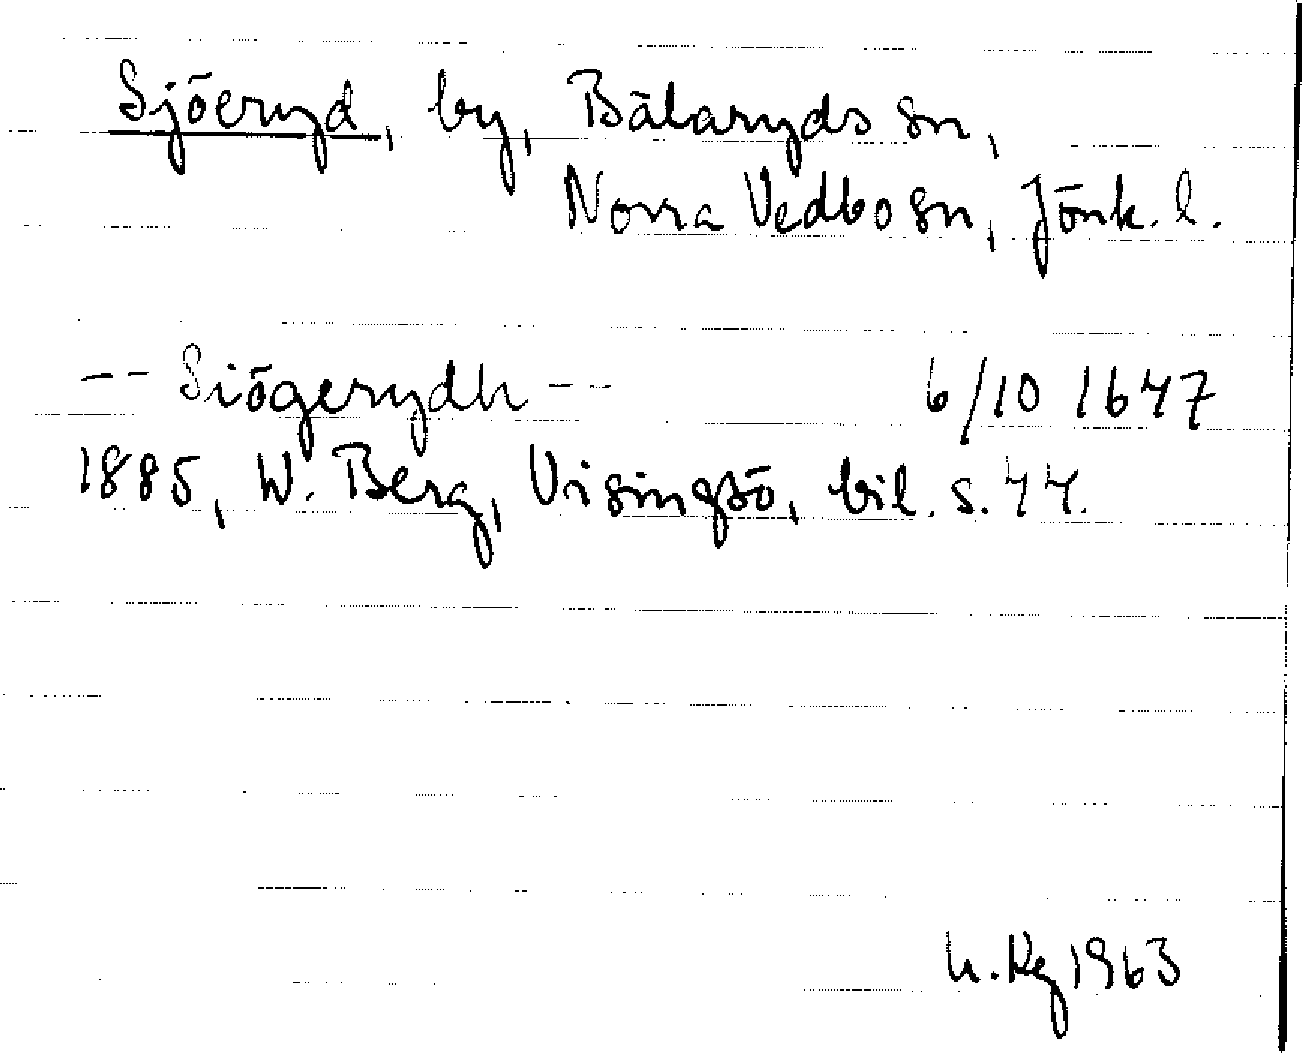 Sjöeryd, by, Bälaryds sn,
Norra Vedbo sn, Jönk. l.
-- Siögerydh -- 6/10 1647
1885, W. Berg, Visingsö, bil. s. 44.
1963